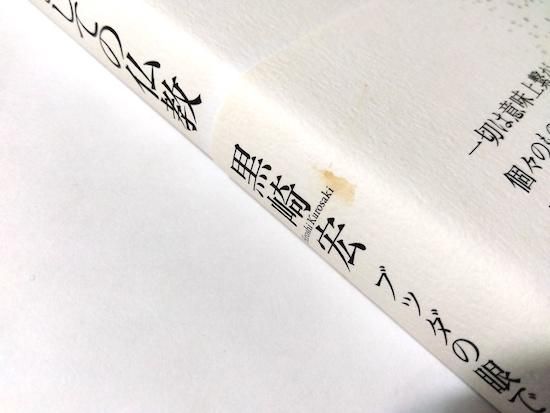 しての仏教
黒崎宏
Hiroshi Kurosaki
ブッダの眼で
一切は意味上繋が
個々のもの